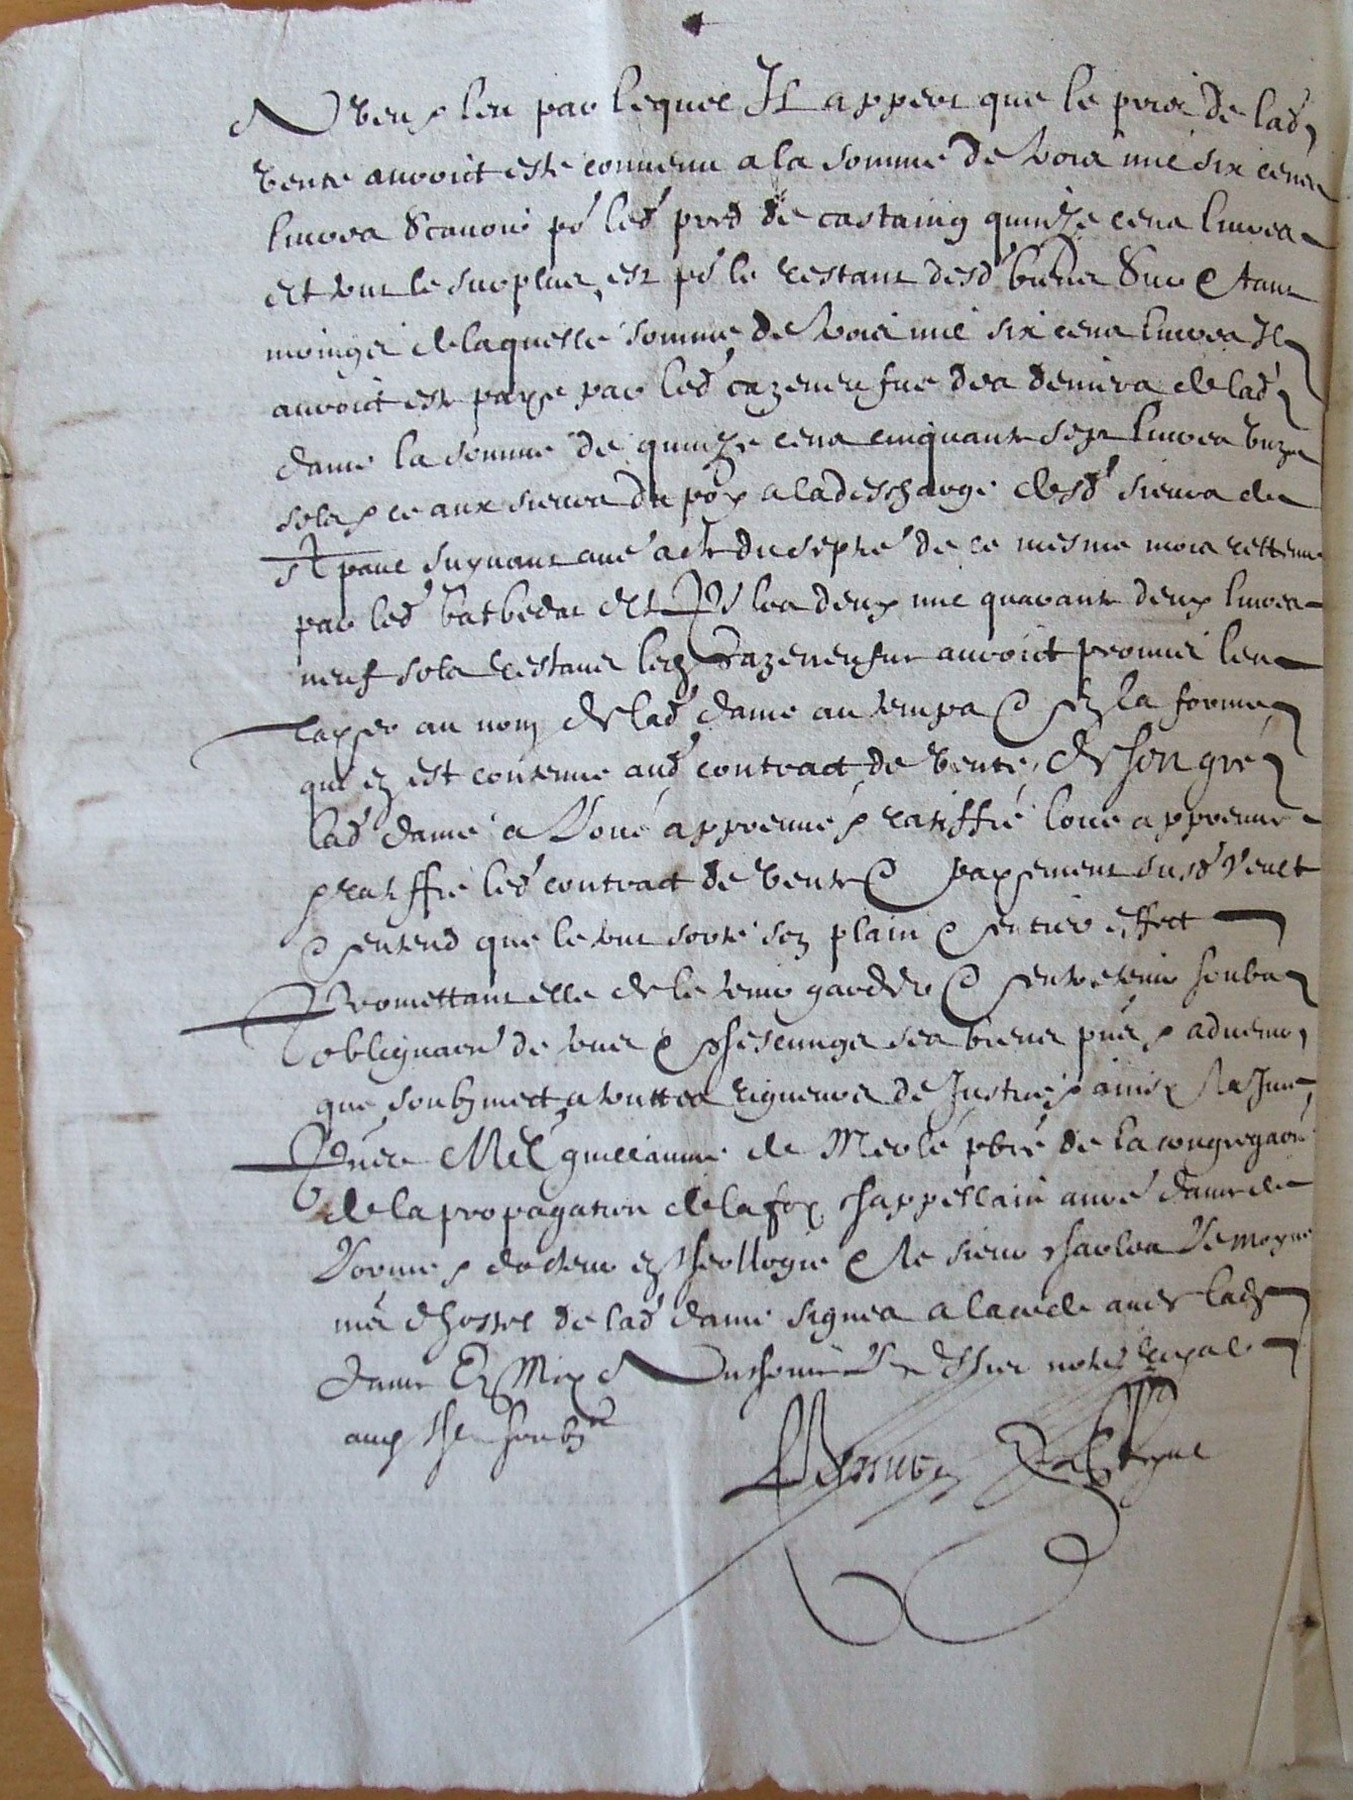 par lequel Il appert que le prix de lad
vente auroit este conuenu a la somme de trois mil six cens
liures Scauoir pr led pred de castaing quinze cens liures
et tout le surplus est pr le restant desd biens Sur & tant
moings de laquelle somme de trois mil six cens liures Il
auroit este paye par led cazeneufue des deniers de lad
dame la somme de quinze cens cinquante sept liures unze
sols ce aux sieurs du a la descharge desd sieurs de
St paul suyuant aue acte du septe de ce mesme mois rettenu
par led batbedat Et les deux mil quarante deux liures
neuf sols restans led Cazeneufue auroit promis les
payer au nom de lad dame au temps & en la forme
qui est contenue aud contract de vente, de son gré
lad dame a loué appreuué ratiffié loue appreuue
ratiffie led contract de vente & payement susd veult
& entend que le tout sorte son plain & entier effect
Promettant elle de le tenir garder & entretenir soubs
obligaon de tous & chescungs ses biens pns aduenir
que soubzmect a touttes rigueurs de Justice ainsi
Mre guillaume de Merle pbre de la congregaon
de la propagation de la foy chappellain
docteur en theollogie & le sieur charles Lemoyne
me dhostel de lad dame signes a la cede auec lad
dame Et Moy notre royal
soubz ne